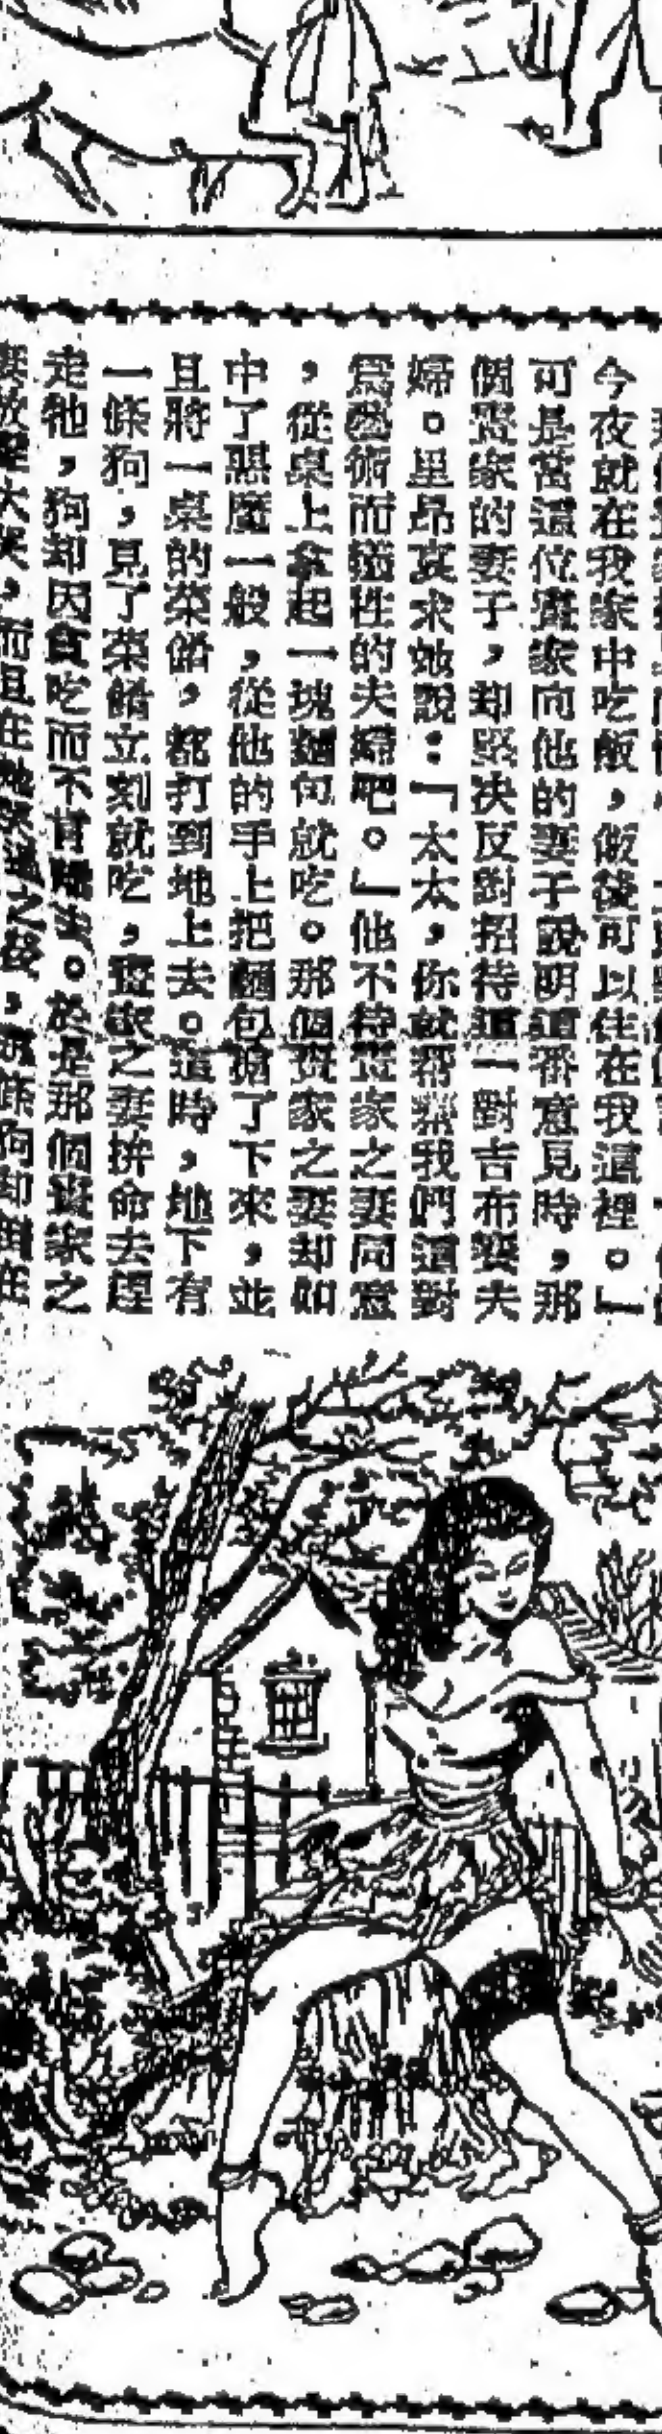 今夜就在我家中吃飯，飯後可以住在我這裡。」
可是當這位畫家向他的妻子說明這番意見時，那
個畫家的妻子，却堅決反對招待這一對吉布賽夫
婦。里昂哀求她說：「太太，你就幫幫我們這對
爲藝術而犧牲的夫婦吧。」他不待畫家之妻同意
，從桌上拿起一塊麵包就吃。那個畫家之妻却如
中了惡魔一般，從他的手上把麵包搶了下來，並
且將一桌的菜餚，都打到地上去。這時，地下有
一條狗，見了菜餚立刻就吃，畫家之妻拚命去趕
走牠，狗却因貪吃而不甘離去。於是那個畫家之
大笑，而且在之後，那條狗却倒在